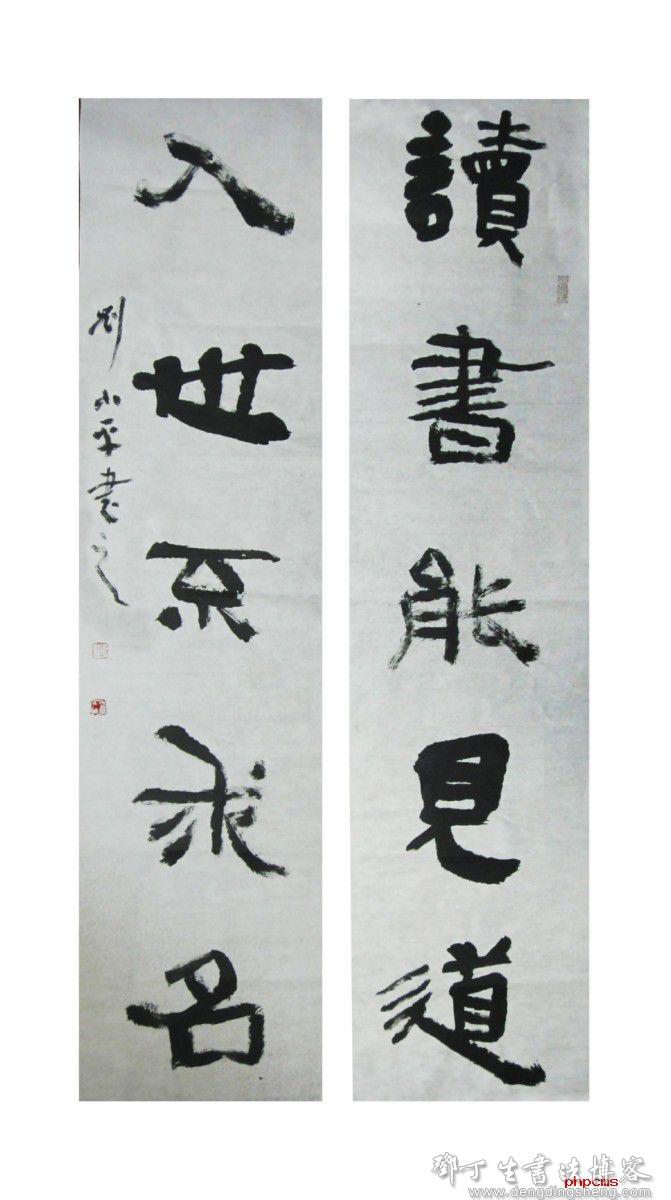 讀書能見道
入世不求名
劉小平書之
鄧丁生書法博客
phpcms
www.dengdingsheng.com